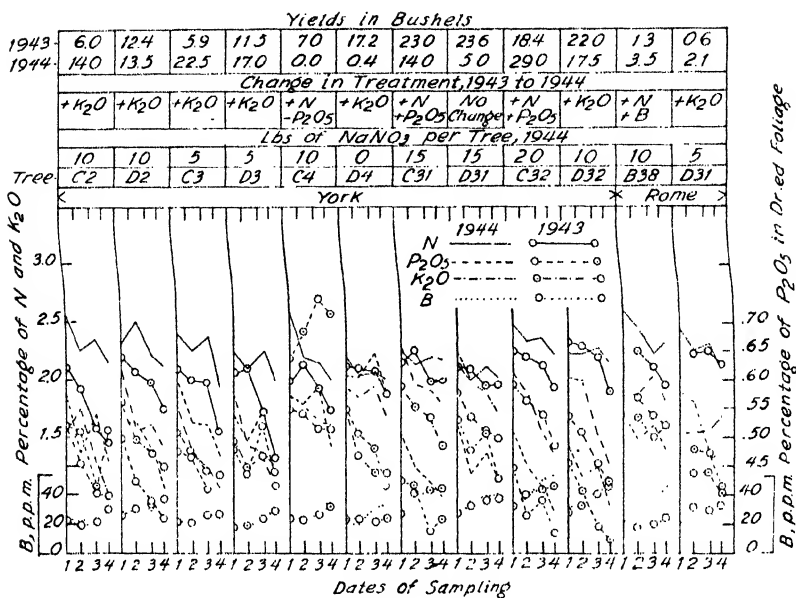 Yields in Bushels
1943 6.0 12.4 5.9 11.5 7.0 17.2 23.0 23.6 18.4 22.0 1.3 0.6
1944 14.0 13.5 22.5 17.0 0.0 0.4 14.0 5.0 29.0 17.5 3.5 2.1
Change in Treatment, 1943 to 1944
+K₂O +K₂O +K₂O +K₂O +N -P₂O₅ +K₂O +N +P₂O₅ No Change +N +P₂O₅ +K₂O +N +B +K₂O
Lbs of NaNO₃ per Tree, 1944
10 10 5 5 10 0 15 15 20 10 10 5
Tree C2 D2 C3 D3 C4 D4 C31 D31 C32 D32 B38 D31
York Rome
1944 1943
N
P₂O₅
K₂O
B
B, p.p.m. Percentage of N and K₂O
3.0
2.5
2.0
1.5
40
20
0
.70
.65
.60
.55
.50
.45
40
20
0
B, p.p.m. Percentage of P₂O₅ in Dried Foliage
1 2 3 4 1 2 3 4 1 2 3 4 1 2 3 4 1 2 3 4 1 2 3 4 1 2 3 4 1 2 3 4 1 2 3 4 1 2 3 4 1 2 3 4 1 2 3 4
Dates of Sampling